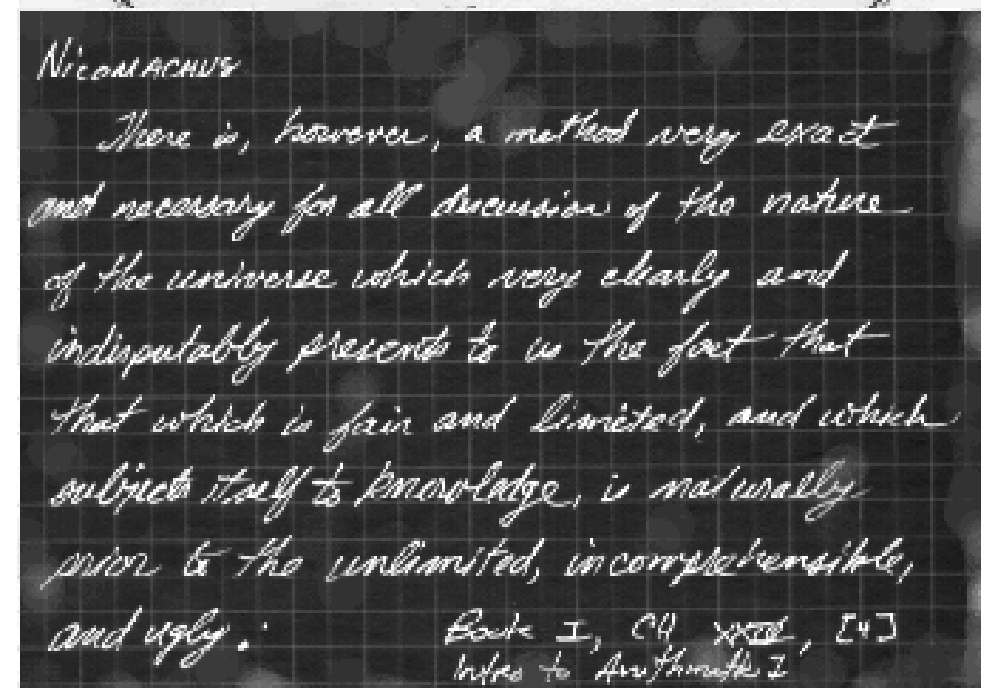 NICOMACHUS
There is, however, a method very exact
and necessary for all discussion of the nature
of the universe which very clearly and
indisputably presents to us the fact that
that which is fair and limited, and which
subjects itself to knowledge, is naturally
prior to the unlimited, incomprehensible,
and ugly.
Book I, CH XXIII, [4]
Intro to Arithmetic I